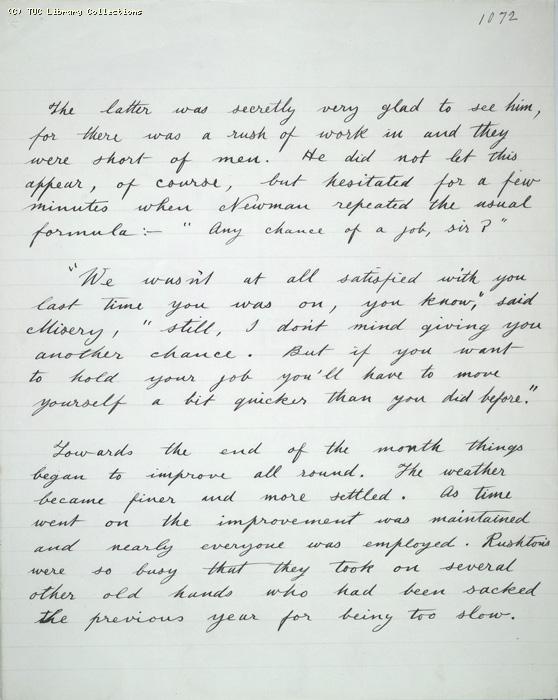 (C) TUC Library Collections
1072
The latter was secretly very glad to see him,
for there was a rush of work in and they
were short of men. He did not let this
appear, of course, but hesitated for a few
minutes when Newman repeated the usual
formula:- " Any chance of a job, sir?"
"We wasn't at all satisfied with you
last time you was on, you know," said
Misery, "still, I don't mind giving you
another chance. But if you want
to hold your job you'll have to move
yourself a bit quicker than you did before."
Towards the end of the month things
began to improve all round. The weather
became finer and more settled. As time
went on the improvement was maintained
and nearly everyone was employed. Rushton's
were so busy that they took on several
other old hands who had been sacked
the previous year for being too slow.